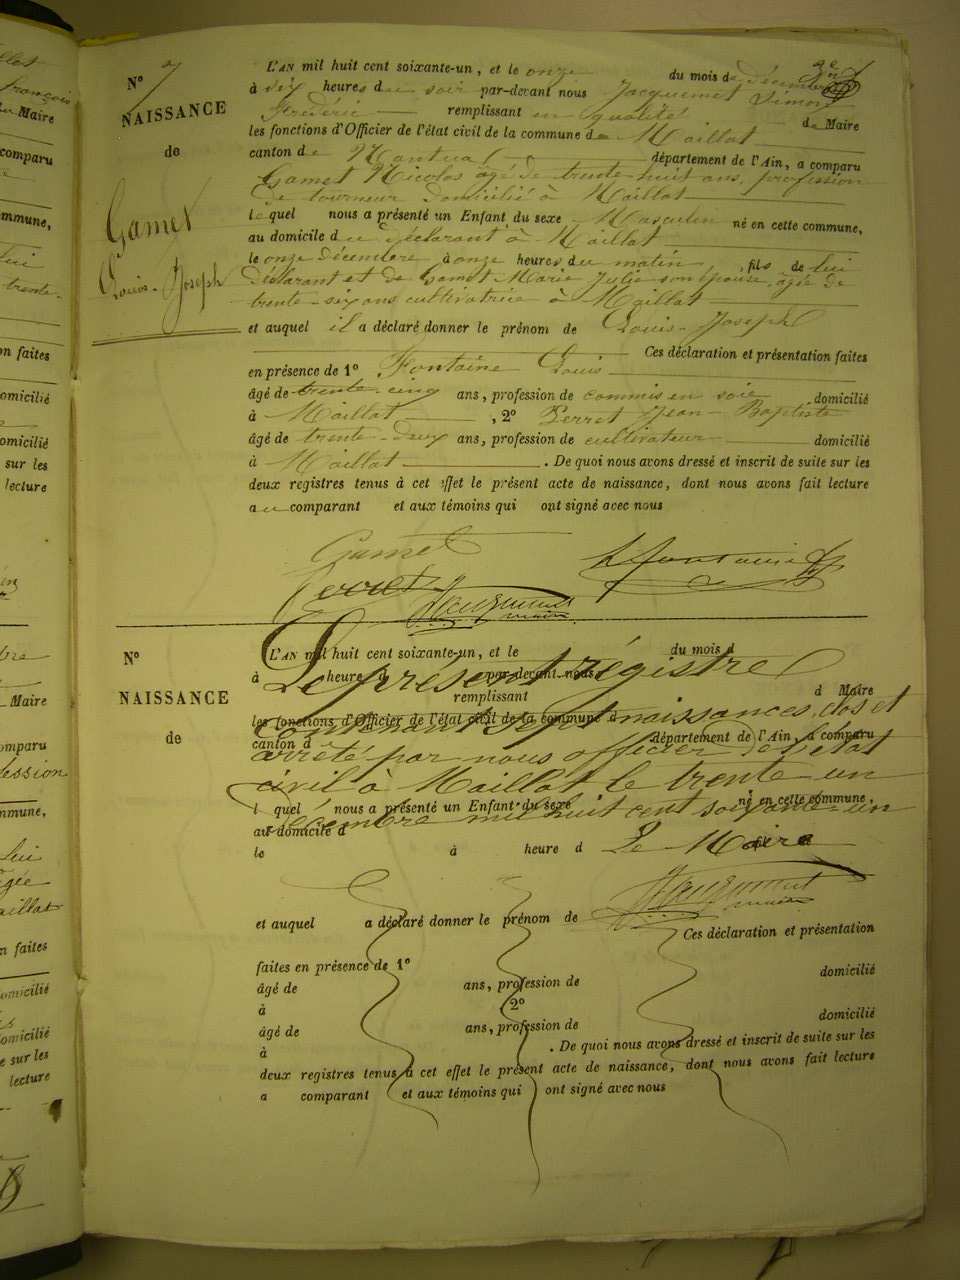 N° 7
NAISSANCE
de
Gamet
Louis-Joseph
L'AN mil huit cent soixante-un, et le onze du mois de décembre
à six heures du soir par-devant nous Jacquemet Simon
Frédéric remplissant en qualité de Maire
les fonctions d'Officier de l'état civil de la commune de Maillat
canton de Nantua département de l'Ain, a comparu
Gamet Nicolas âgé de trente-huit ans, profession
de tourneur domicilié à Maillat
lequel nous a présenté un Enfant du sexe Masculin né en cette commune,
au domicile du déclarant à Maillat
le onze décembre à onze heures du matin, fils de lui
déclarant et de Gamet Marie Julie son épouse, âgée de
trente-six ans cultivatrice à Maillat
et auquel il a déclaré donner le prénom de Louis-Joseph
Ces déclaration et présentation faites
en présence de 1° Fontaine Louis
âgé de trente-cinq ans, profession de commis en soie domicilié
à Maillat, 2° Perret Jean-Baptiste
âgé de trente-deux ans, profession de cultivateur domicilié
à Maillat. De quoi nous avons dressé et inscrit de suite sur les
deux registres tenus à cet effet le présent acte de naissance, dont nous avons fait lecture
au comparant et aux témoins qui ont signé avec nous
Gamet
L Fontaine
Perret
Jacquemet
maire
N°
NAISSANCE
de
L'AN mil huit cent soixante-un, et le du mois d
Le présent régistre
à heure d par-devant nous
remplissant d Maire
les fonctions d'Officier de l'état civil de la commune d
contenant sept naissances, clos et
canton d département de l'Ain, a comparu
arrêté par nous officier de l'état
civil à Maillat le trente un
l quel nous a présenté un Enfant du sexe né en cette commune,
décembre mil huit cent soixante un
au domicile d
le à heure d Le Maire
Jacquemet
maire
et auquel a déclaré donner le prénom de
Ces déclaration et présentation
faites en présence de 1° domicilié
âgé de ans, profession de
à 2° domicilié
âgé de ans, profession de
à . De quoi nous avons dressé et inscrit de suite sur les
deux registres tenus à cet effet le présent acte de naissance, dont nous avons fait lecture
a comparant et aux témoins qui ont signé avec nous